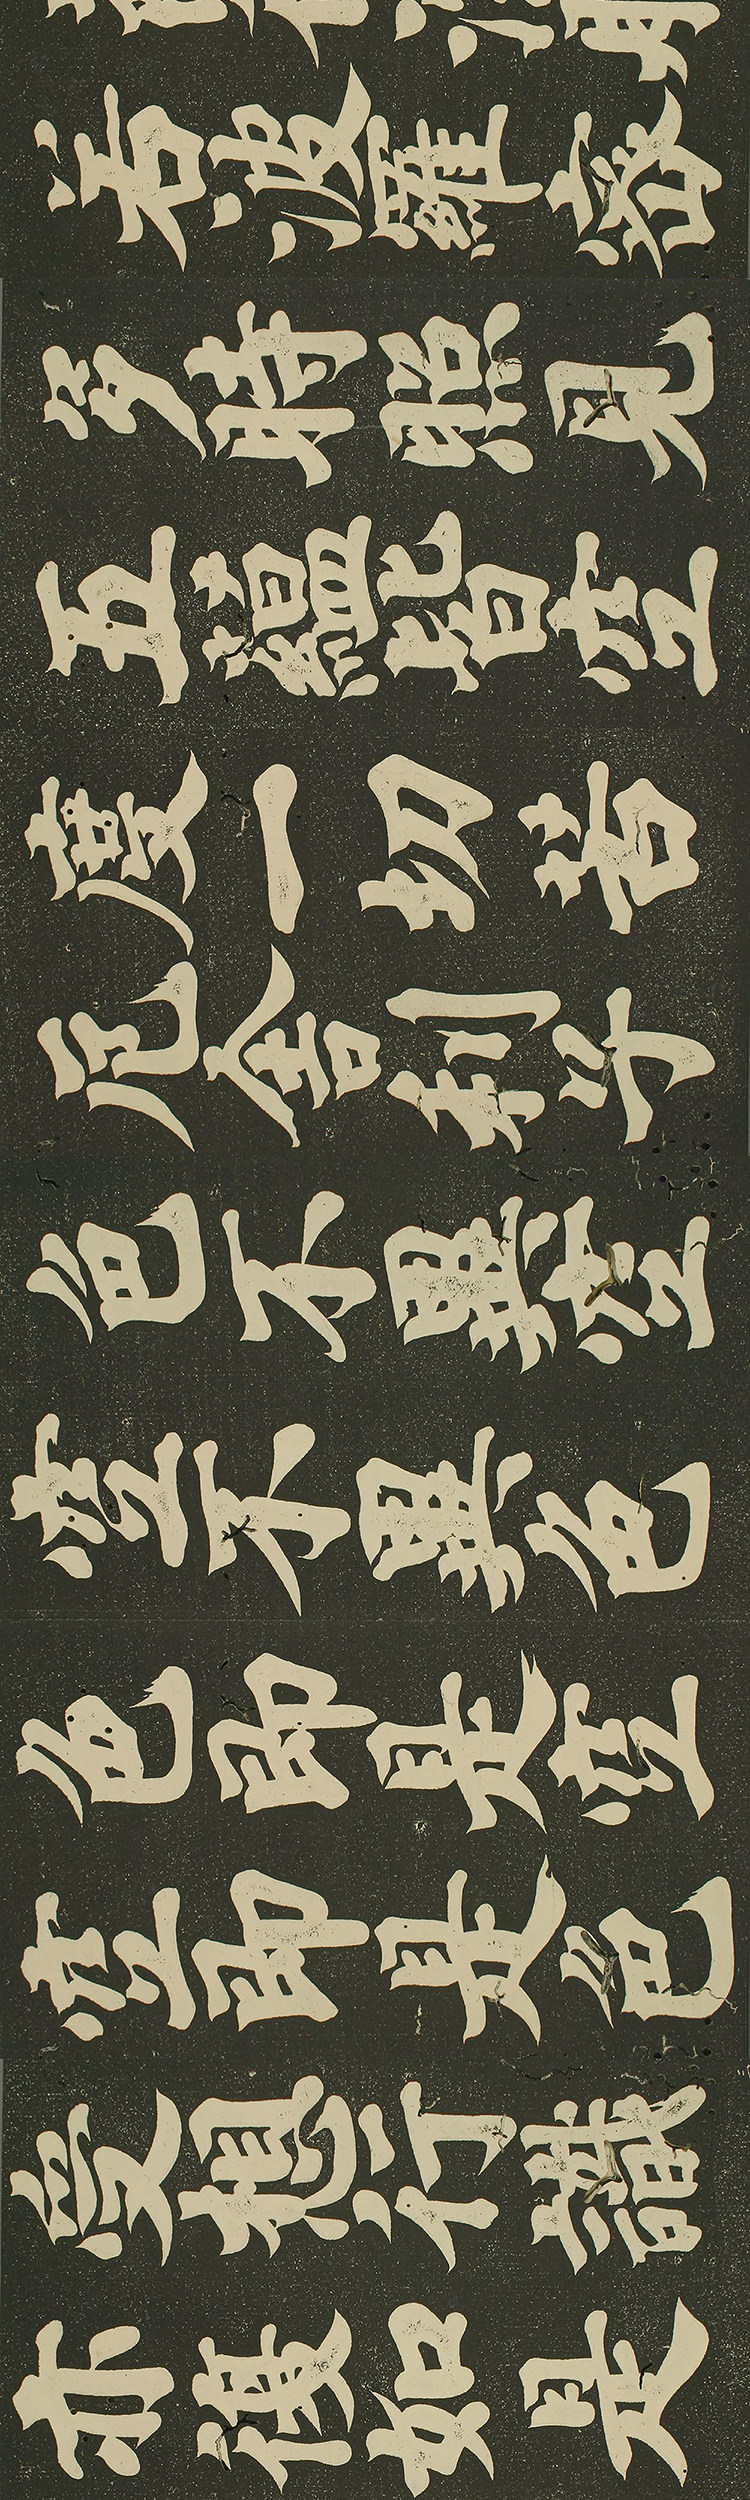 若波羅密
多時照見
五蘊皆空
度一切苦
厄舍利子
色不異空
空不異色
色即是空
空即是色
受想行識
亦復如是